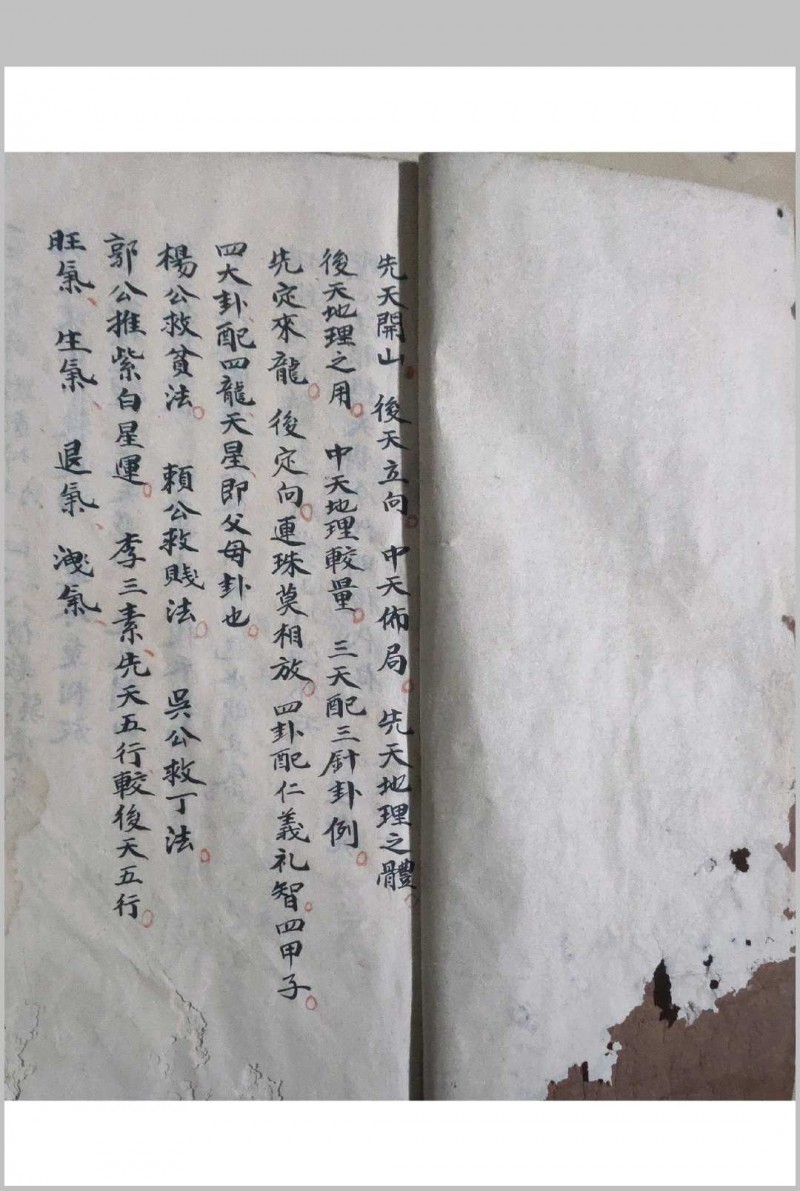 先天開山。後天立向。中天佈局。先天地理之體。
後天地理之用。中天地理較量。三天配三針卦例。
先定來龍。後定向。連珠莫相放。四卦配仁義礼智四甲子。
四大卦配四龍天星即父母卦也。
楊公救貧法。賴公救賤法。吳公救丁法。
郭公推紫白星運。李三素、先天五行較後天五行。
旺氣、生氣、退氣、洩氣、